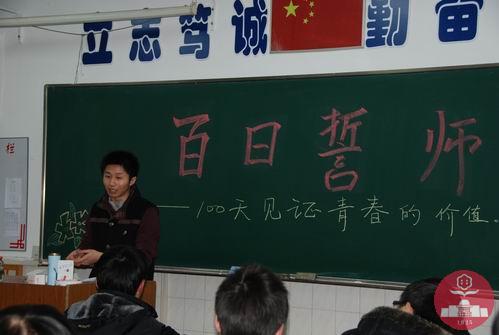 立志笃诚 勤奋
百日誓师
——100天见证青春的价值
栏